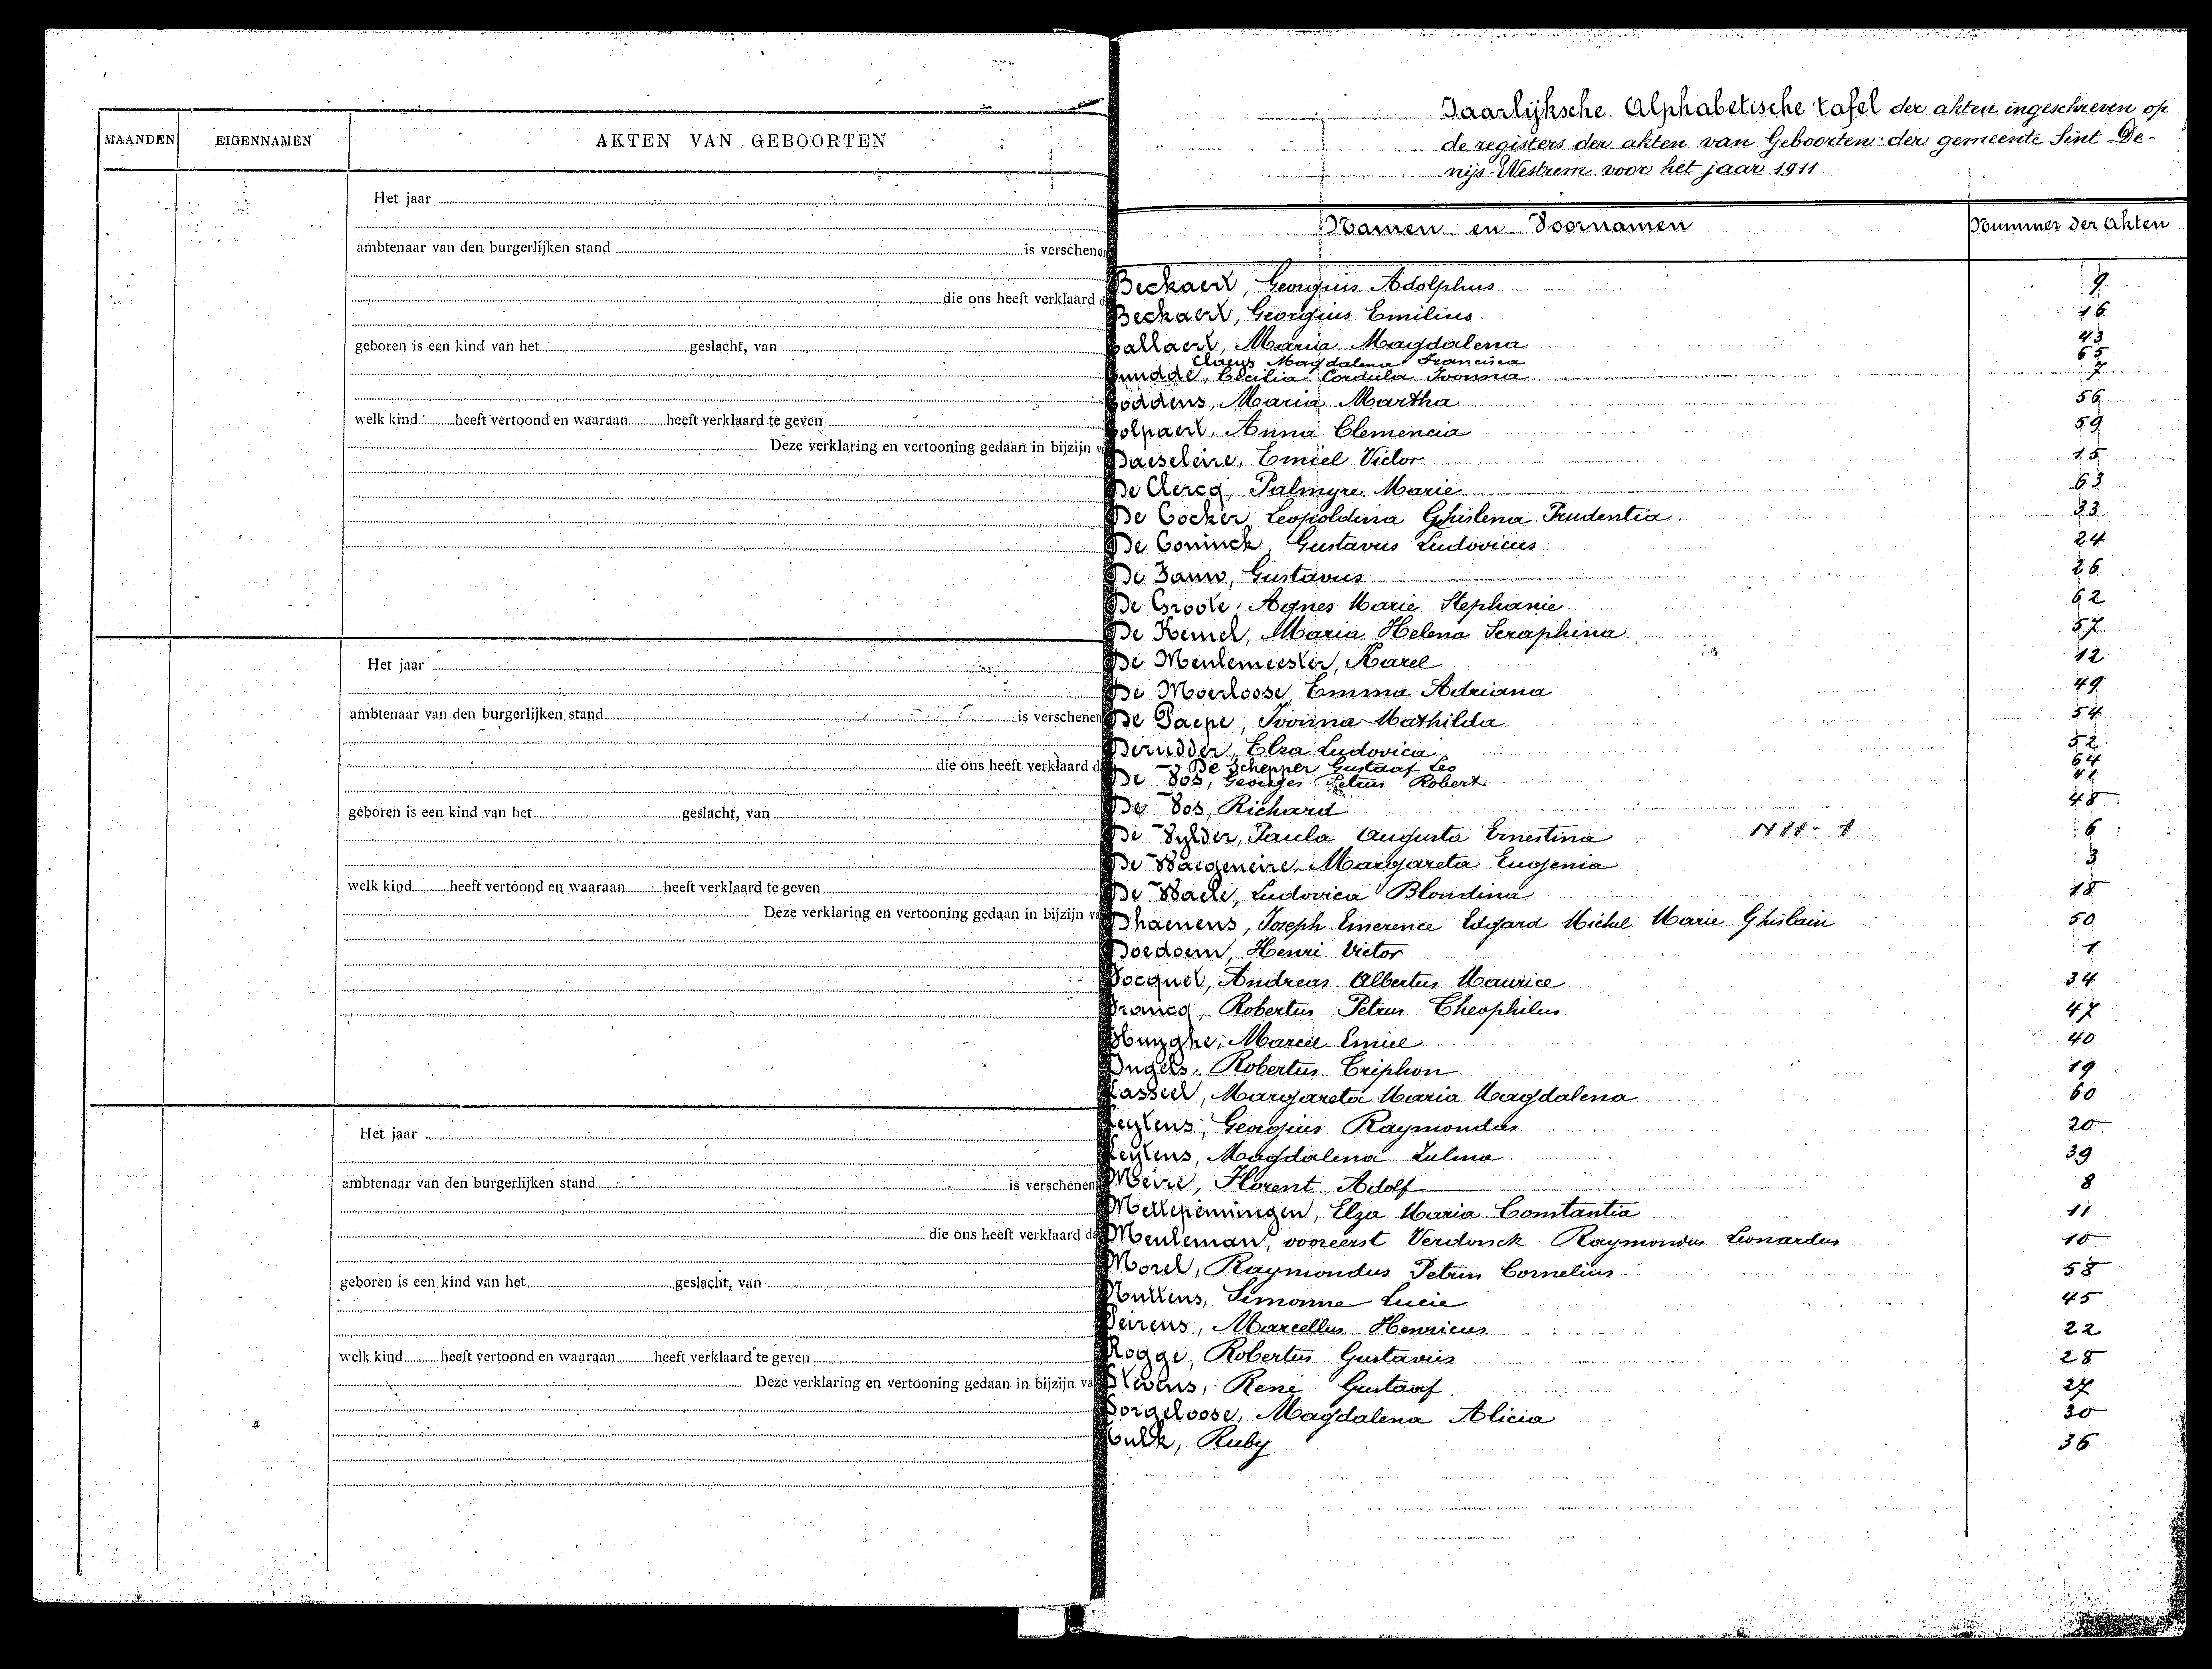 MAANDEN EIGENNAMEN AKTEN VAN GEBOORTEN
Het jaar
ambtenaar van den burgerlijken stand is verschenen
die ons heeft verklaard d
geboren is een kind van het geslacht, van
welk kind heeft vertoond en waaraan heeft verklaard te geven
Deze verklaring en vertooning gedaan in bijzijn v
Het jaar
ambtenaar van den burgerlijken stand is verschenen
die ons heeft verklaard d
geboren is een kind van het geslacht, van
welk kind heeft vertoond en waaraan heeft verklaard te geven
Deze verklaring en vertooning gedaan in bijzijn va
Het jaar
ambtenaar van den burgerlijken stand is verschenen
die ons heeft verklaard da
geboren is een kind van het geslacht, van
welk kind heeft vertoond en waaraan heeft verklaard te geven
Deze verklaring en vertooning gedaan in bijzijn va
Jaarlijksche Alphabetische tafel der akten ingeschreven op
de registers der akten van Geboorten der gemeente Sint De-
nijs-Westrem voor het jaar 1911
Namen en Voornamen Nummer der Akten
Beckaert, Georgius Adolphus 9
Beckaert, Georgius Emilius 16
Callaert, Maria Magdalena 43
Claeys Magdalena Francisca 65
Cecilia Cordula Ivonna 7
Coddens, Maria Martha 56
Colpaert, Anna Clemencia 59
Daeseleire, Emiel Victor 15
De Clercq, Palmyre Marie 63
De Cocker Leopoldina Ghislena Prudentia 33
De Coninck, Gustavus Ludovicus 24
De Fauw, Gustavus 26
De Groote, Agnes Marie Stephanie 62
De Kemel, Maria Helena Seraphina 57
De Meulemeester, Karel 12
De Moerloose Emma Adriana 49
De Paepe, Ivonna Mathilda 54
Derudder, Elza Ludovica 52
De Schepper Gustaaf Leo 64
De Vos, Georges Petrus Robert 41
De Vos, Richard 48
De Vylder, Paula Augusta Ernestina 6
De Waegeneire, Margareta Eugenia 3
De Waele, Ludovica Blondina 18
Dhaenens, Joseph Emerence Edgard Michel Marie Ghislain 50
Doedoem, Henri Victor 1
Focquet, Andreas Albertus Maurice 34
Francq, Robertus Petrus Theophilus 47
Huyghe, Marcel Emiel 40
Ingels, Robertus Triphon 19
Kasseel, Margareta Maria Magdalena 60
Leytens, Georgius Raymondus 20
Leytens, Magdalena Zulma 39
Meire, Florent Adolf 8
Mettepenningen, Elza Maria Constantia 11
Meuleman, vooreerst Verdonck Raymondus Leonardus 10
Morel, Raymondus Petrus Cornelius 58
Nuttens, Simonne Lucie 45
Peirens, Marcellus Henricus 22
Rogge, Robertus Gustavus 28
Stevens, René Gustaaf 27
Sorgeloose, Magdalena Alicia 30
Ruby 36